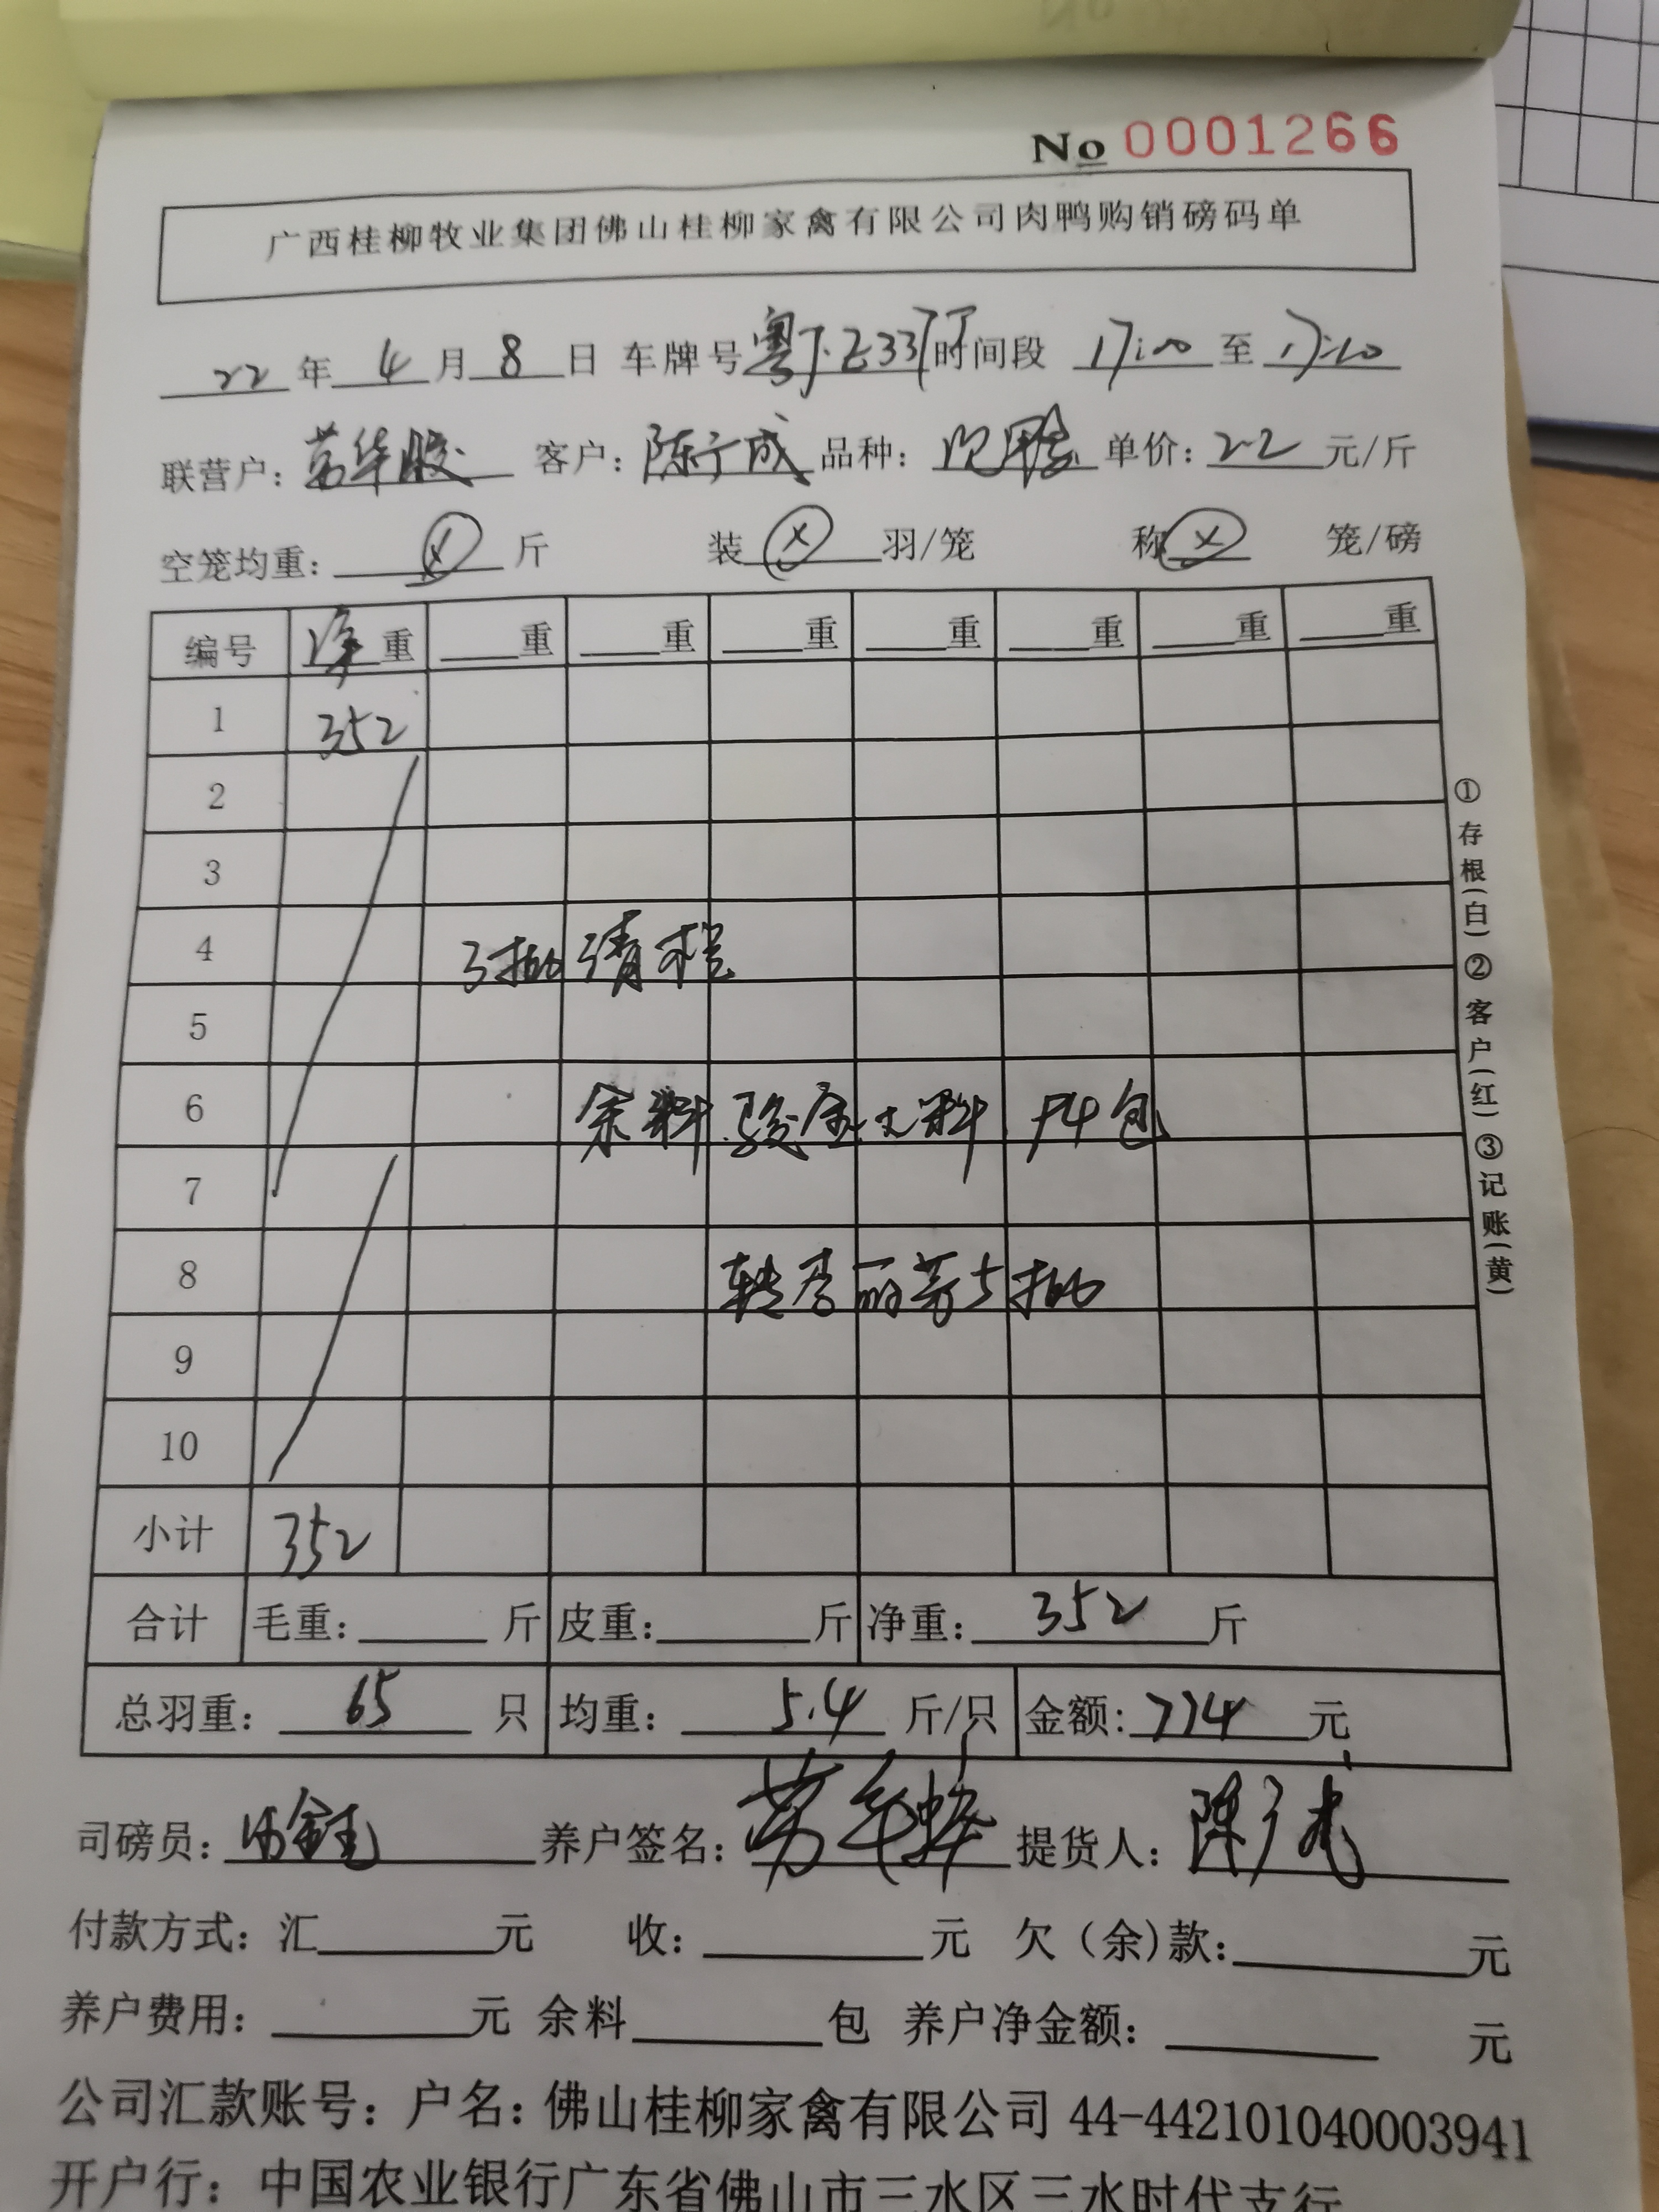 No 0001266
广西桂柳牧业集团佛山桂柳家禽有限公司肉鸭购销磅码单
22年4月8日 车牌号 粤J·E33 时间段 17:00 至 17:10
联营户: 客户: 陈广成 品种: 鸭 单价: 2.2 元/斤
空笼均重: X 斤 装 X 羽/笼 称 X 笼/磅
编号 净重 重 重 重 重 重 重 重
1 352
2
3
4 3批清栏
5
6 余料.骏宝大料.74包
7
8 转李丽芳5批
9
10
小计 352
合计 毛重: 斤 皮重: 斤 净重: 352 斤
总羽重: 65 只 均重: 5.4 斤/只 金额: 774 元
司磅员: 养户签名: 提货人: 陈广成
付款方式: 汇 元 收: 元 欠(余)款: 元
养户费用: 元 余料 包 养户净金额: 元
公司汇款账号: 户名: 佛山桂柳家禽有限公司 44-442101040003941
开户行: 中国农业银行广东省佛山市三水区三水时代支行
①存根(白)②客户(红)③记账(黄)